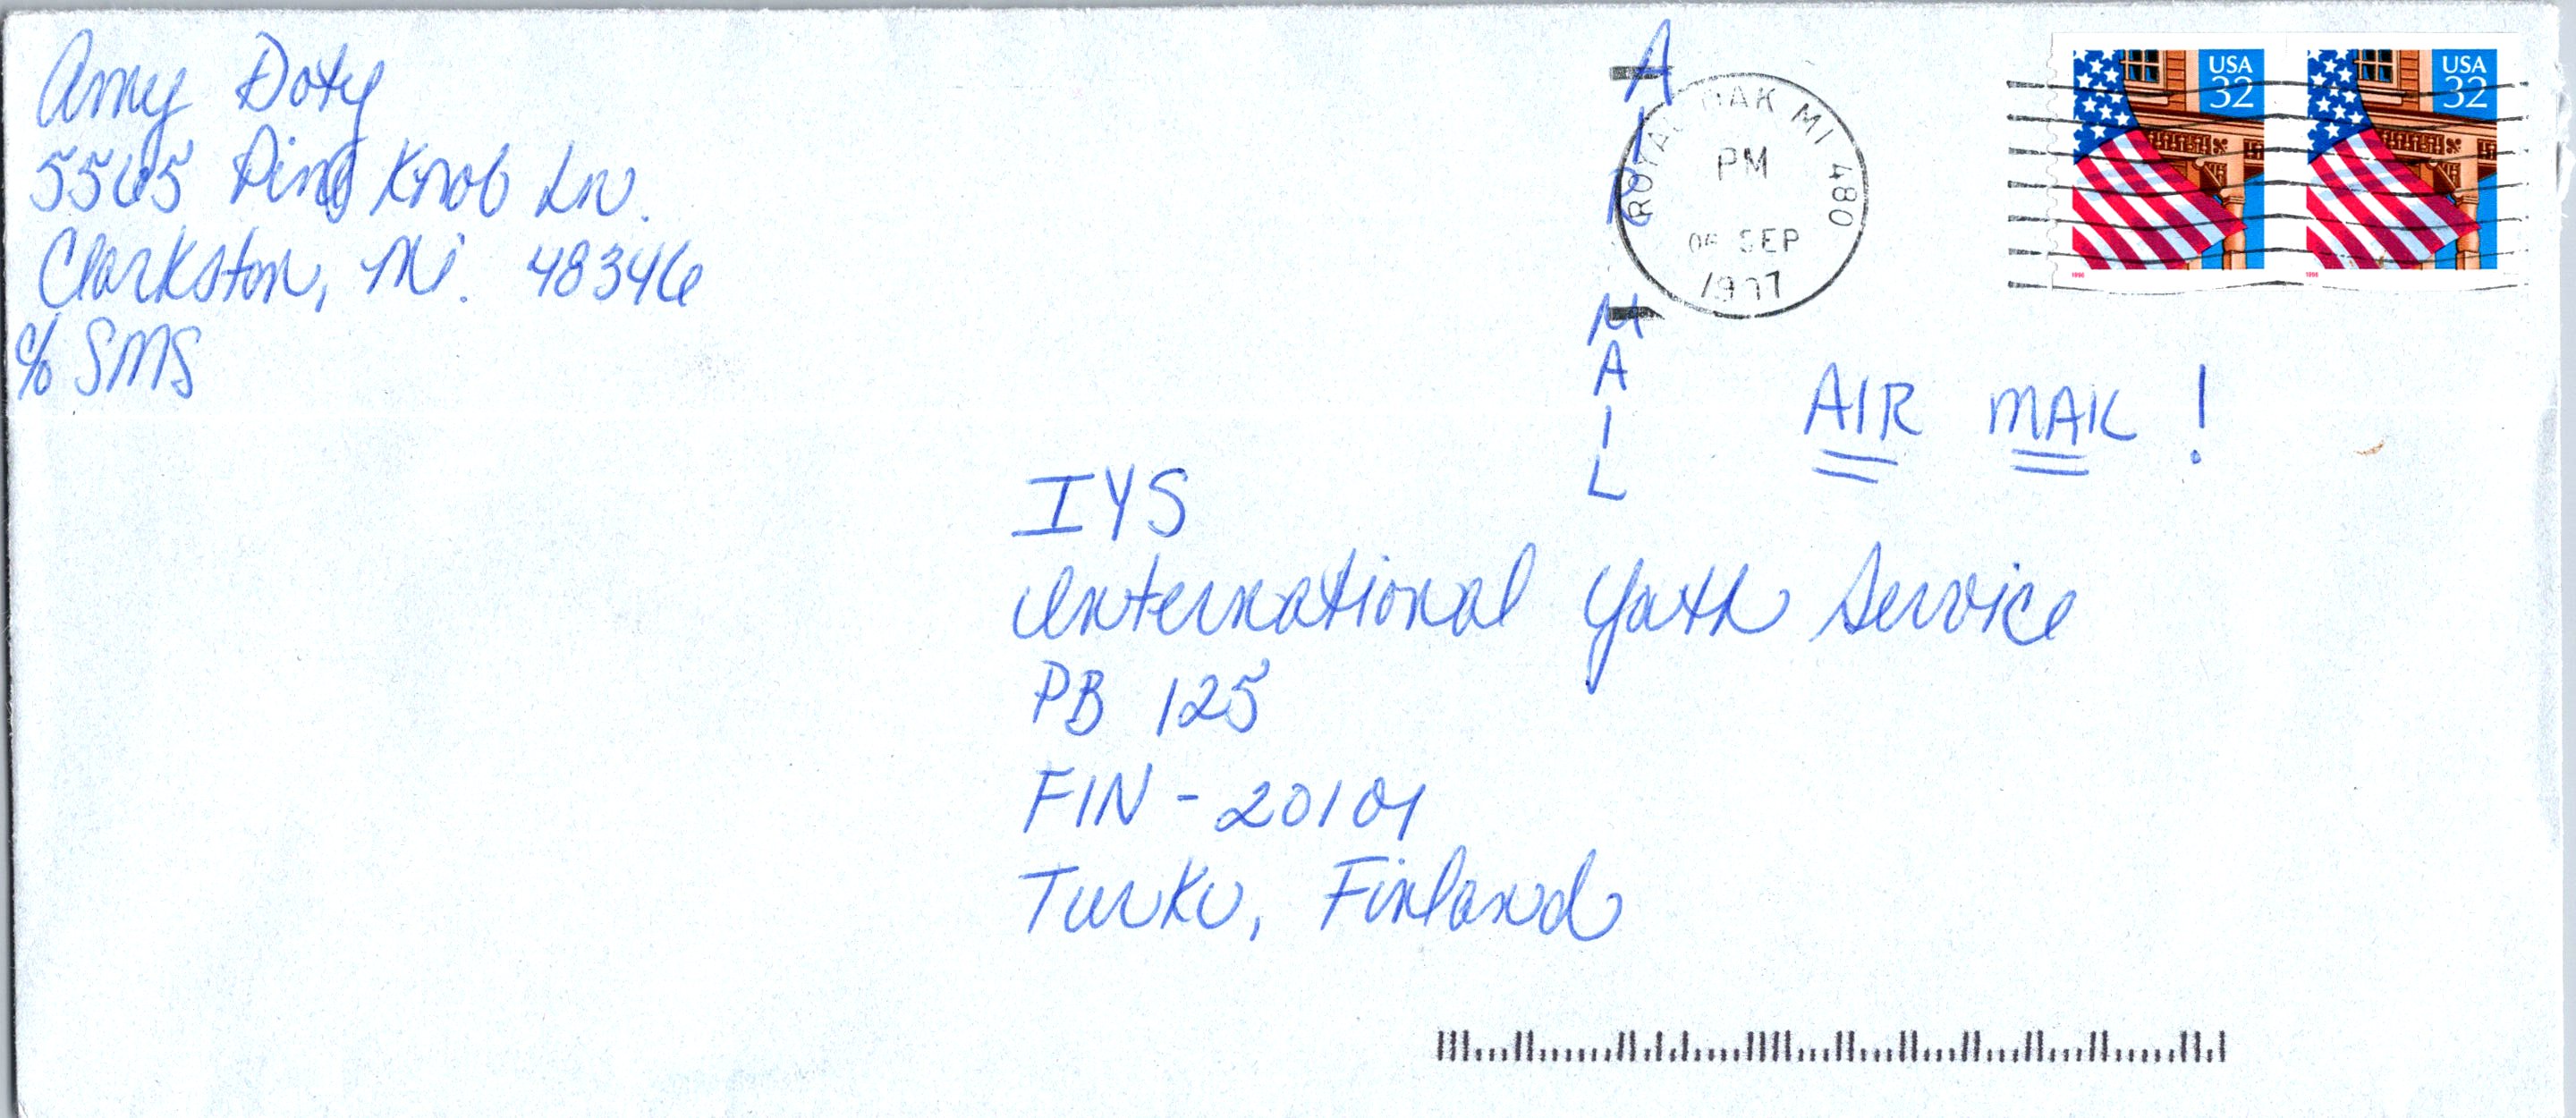 Amy Doty
5565 Pine Knob Ln.
Clarkston, Mi. 48346
c/o SMS
AIR MAIL
ROYAL OAK MI 480
PM
SEP
1997
USA
32
USA
32
1996
1996
AIR MAIL !
IYS
International Youth Service
PB 125
FIN - 20101
Turku, Finland